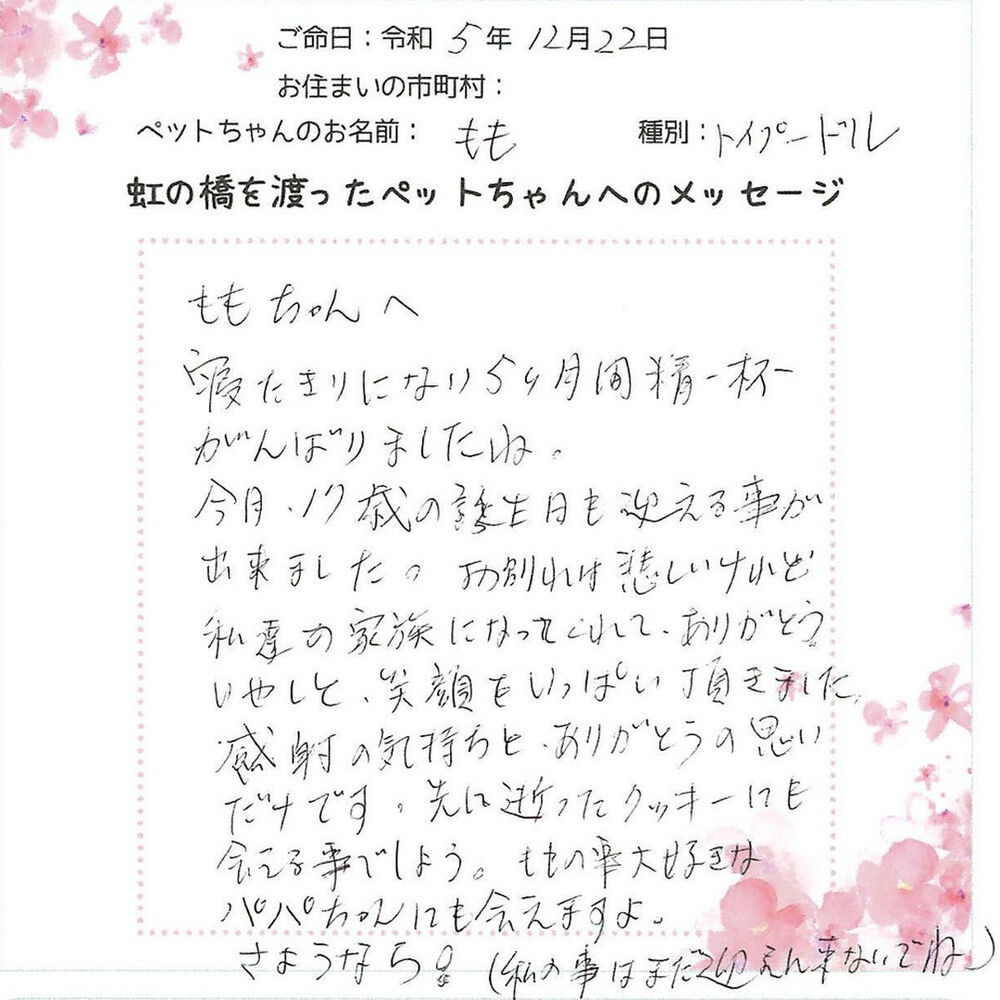 ご命日：令和 5年 12月22日
お住まいの市町村：
ペットちゃんのお名前： もも 種別：トイプードル
虹の橋を渡ったペットちゃんへのメッセージ
ももちゃんへ
寝たきりになり5ヶ月間精一杯
がんばりましたね。
今月、17歳の誕生日も迎える事が
出来ました。お別れは悲しいけれど
私達の家族になってくれて、ありがとう
いやしと、笑顔をいっぱい頂きました。
感射の気持ちと、ありがとうの思い
だけです。先に逝ったクッキーにも
会える事でしょう。ももの事大好きな
パパちゃんにも会えますよ。
さようなら！（私の事はまだ迎えに来ないでね）